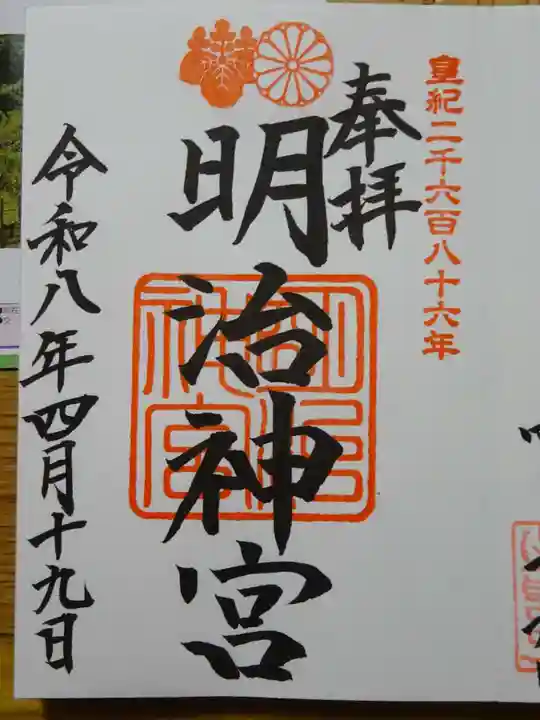 皇紀二千六百八十六年
奉拝
明治神宮
明治神宮
令和八年四月十九日